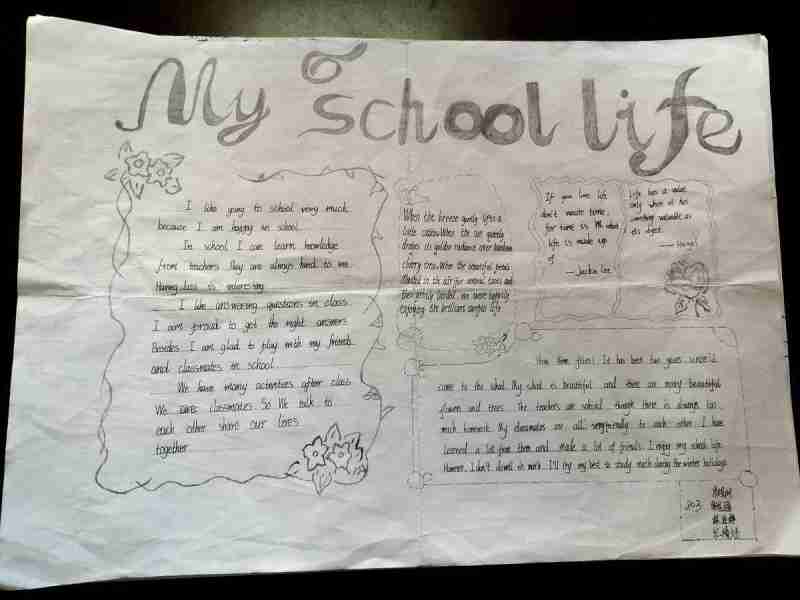 My School life
I like going to school very much
because I am happy in school.
In school I can learn knowledge
from teachers. They are always kind to me.
Having class is interesting
I like answering questions in class
I am proud to get the right answers
Besides. I am glad to play with my friends
and classmates in school
We have many activities after class
We classmates. So We talk to
each other share our lives
together
When the breeze gently lifts a
When the sun gently
its golden radiance over
cherry tree. When the beautiful petals
in the air for and
then gently landed. we were happily
enjoying the brilliant campus life
If you love life
don't waste time,
for time is what
life is made up
of.
—Jackie Lee
Life has a value
only when it has
something valuable as
its object
—— Hegel
How time flies! It has been two years since
came to the school. My school is beautiful and there are many beautiful
flowers and trees. The teachers are though there is always too
much homework. My classmates are all friendly to each other. I have
learned a lot from them and made a lot of friends. I enjoy my school life.
However. I don't do well in math. I'll try my best to study math during the winter holidays
803